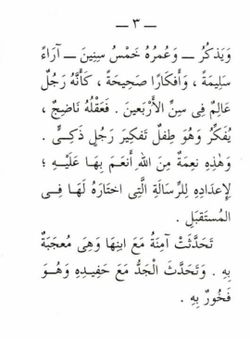 — ٣ —
وَيَذكُرُ — وَعُمرُهُ خَمْسُ سِنِينَ — آرَاءً
سَلِيمَةً ، وَأَفكَارًا صَحِيحَةً ، كَأَنَّهُ رَجُلٌ
عَالِمٌ فِى سِنِّ الأَرْبَعِينَ . فَعَقْلُهُ نَاضِجٌ ،
يُفَكِّرُ وَهُوَ طِفْلٌ تَفكِيرَ رَجُلٍ ذَكِىٍّ .
وَهٰذِهِ نِعمَةٌ مِنَ اللهِ أَنعَمَ بِهَا عَلَيْهِ ؛
لِإِعدَادِهِ لِلرِّسَالَةِ الَّتِى اختَارَهُ لَهَا فِى
المُستَقبَلِ .
تَحَدَّثَتْ آمِنَةُ مَعَ ابنِهَا وَهِىَ مُعجَبَةٌ
بِهِ . وَتَحَدَّثَ الجَدُّ مَعَ حَفِيدِهِ وَهُوَ
فَخُورٌ بِهِ .